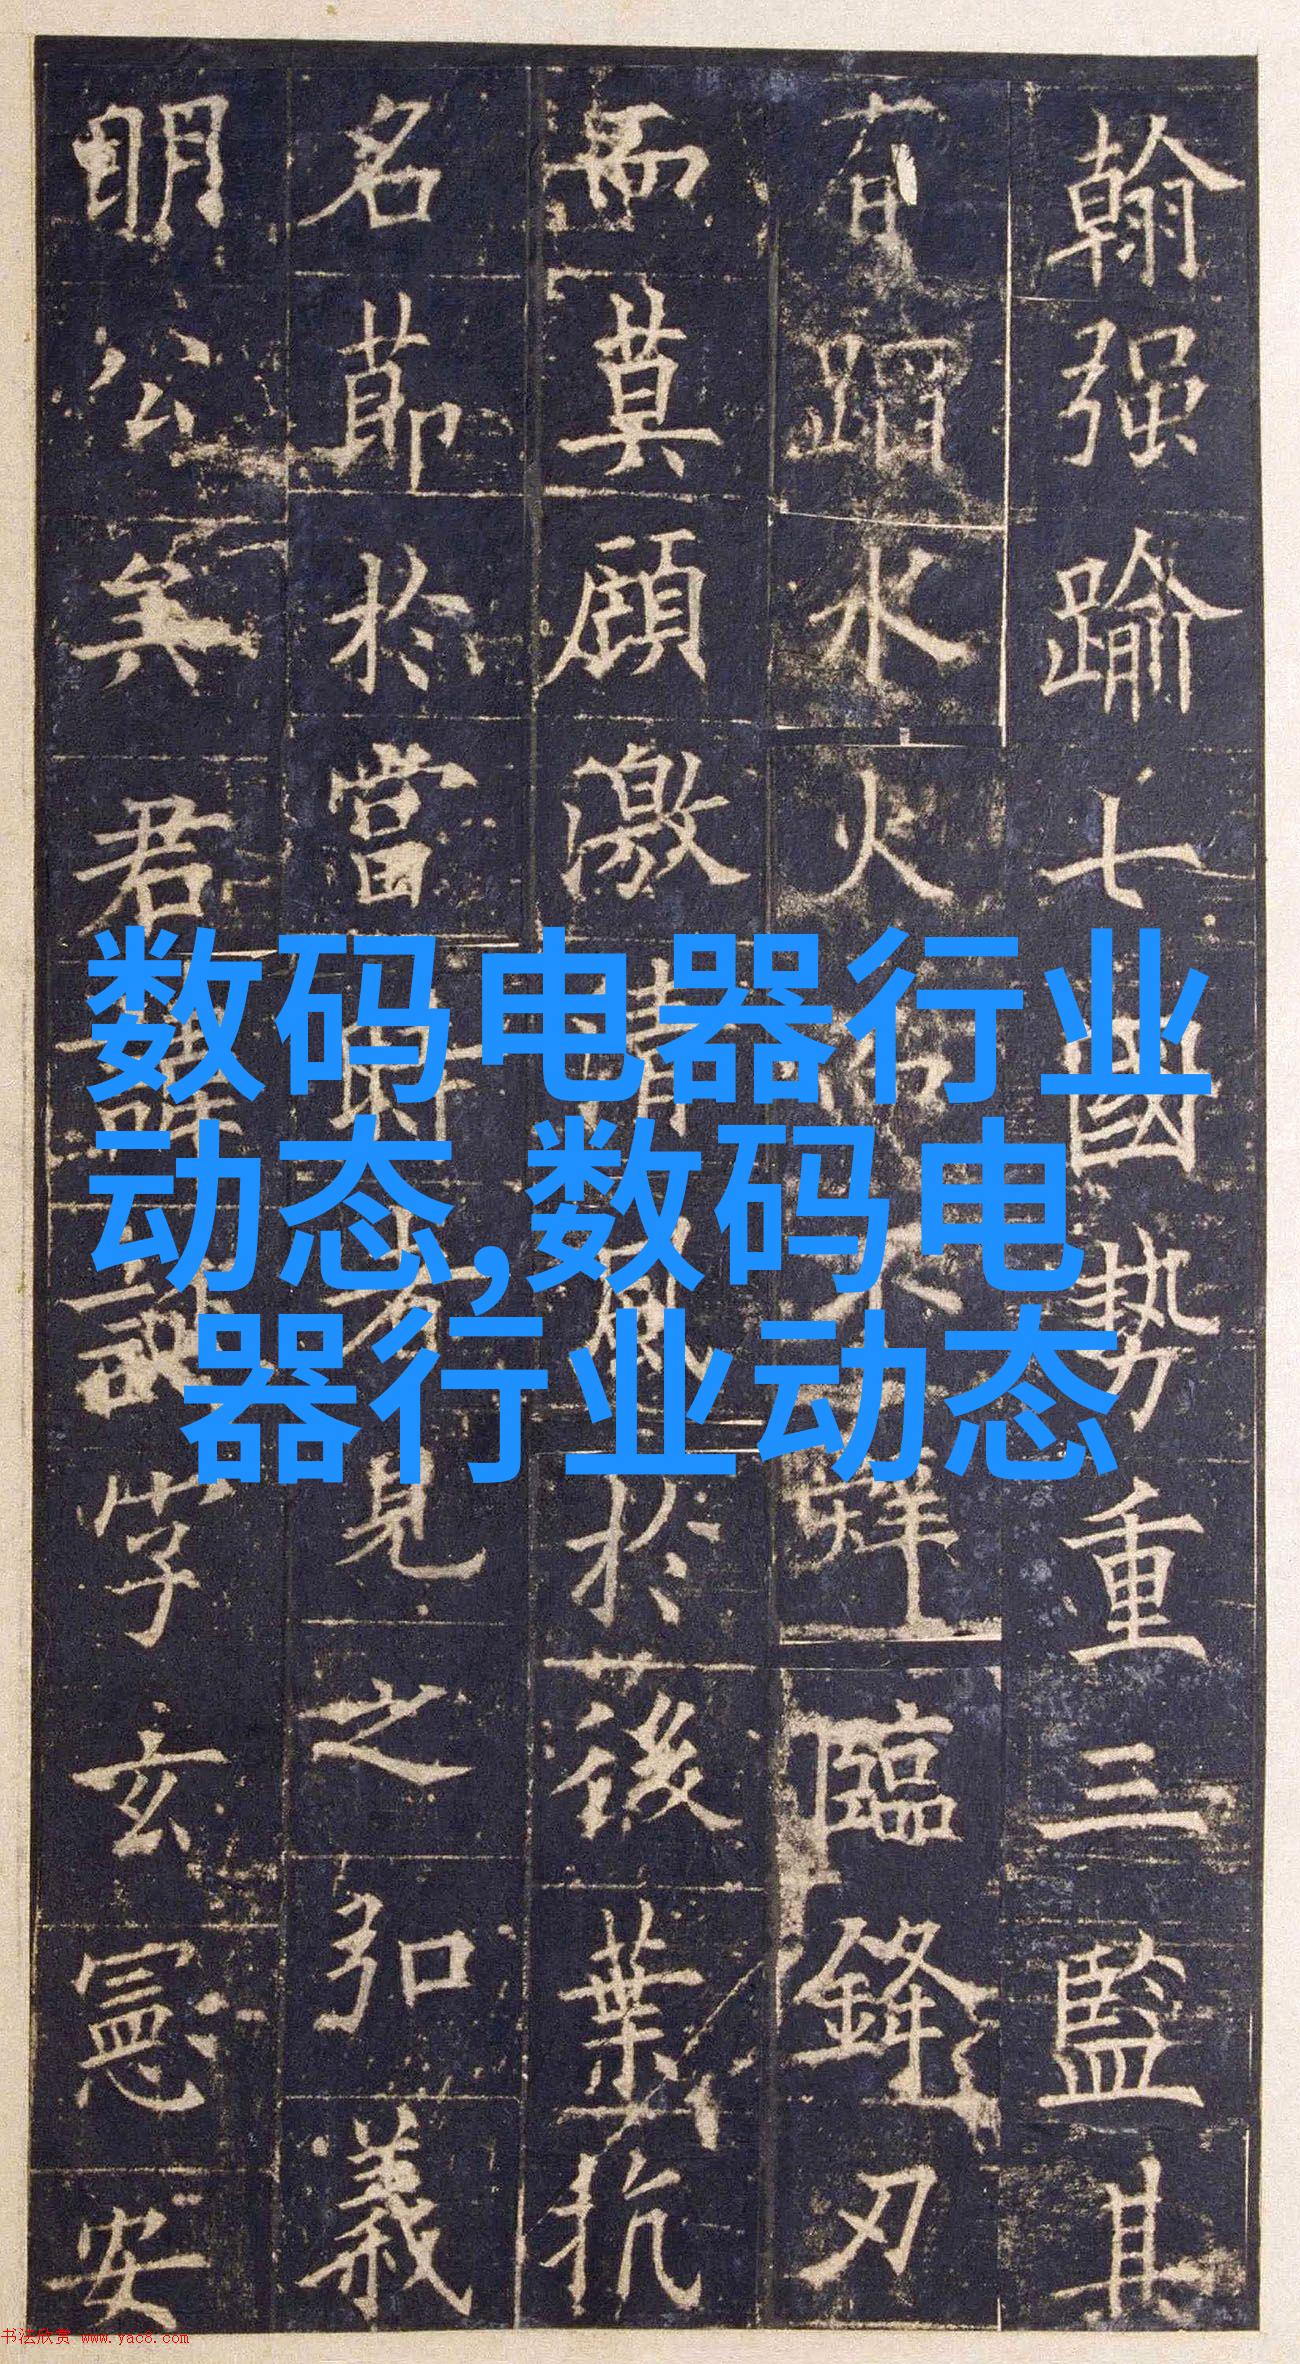 翰强踰七國勢重三監其
有蹈水火不臨鋒刃
而莫顧激清風於後葉抗
名節於當時者見之弘義
明公矣君諱誕字玄憲安
数码电器行业
动态,数码电
器行业动态
书法欣赏 www.yac8.com